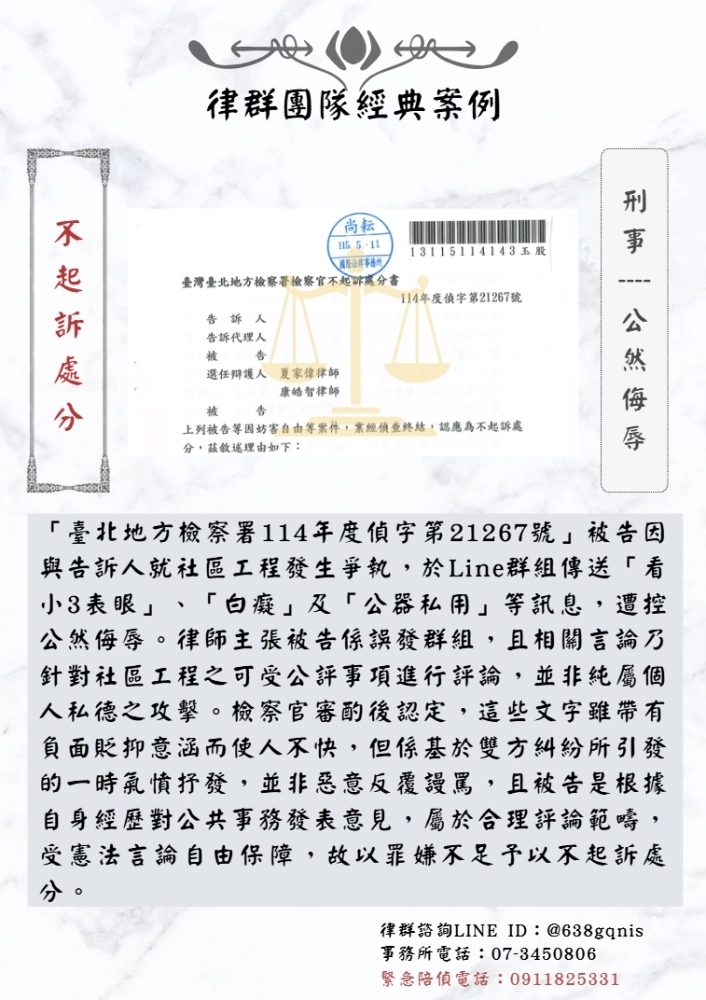 律群團隊經典案例
不起訴處分
刑事----公然侮辱
尚耘
115.5.-11
國際法律事務所
13115114143玉股
臺灣臺北地方檢察署檢察官不起訴處分書
114年度偵字第21267號
告訴人
告訴代理人
被告
選任辯護人 夏家偉律師
康皓智律師
被告
上列被告等因妨害自由等案件,業經偵查終結,認應為不起訴處
分,茲敘述理由如下:
「臺北地方檢察署114年度偵字第21267號」被告因
與告訴人就社區工程發生爭執,於Line群組傳送「看
小3表眼」、「白癡」及「公器私用」等訊息,遭控
公然侮辱。律師主張被告係誤發群組,且相關言論乃
針對社區工程之可受公評事項進行評論,並非純屬個
人私德之攻擊。檢察官審酌後認定,這些文字雖帶有
負面貶抑意涵而使人不快,但係基於雙方糾紛所引發
的一時氣憤抒發,並非惡意反覆謾罵,且被告是根據
自身經歷對公共事務發表意見,屬於合理評論範疇,
受憲法言論自由保障,故以罪嫌不足予以不起訴處
分。
律群諮詢LINE ID:@638gqnis
事務所電話:07-3450806
緊急陪偵電話:0911825331